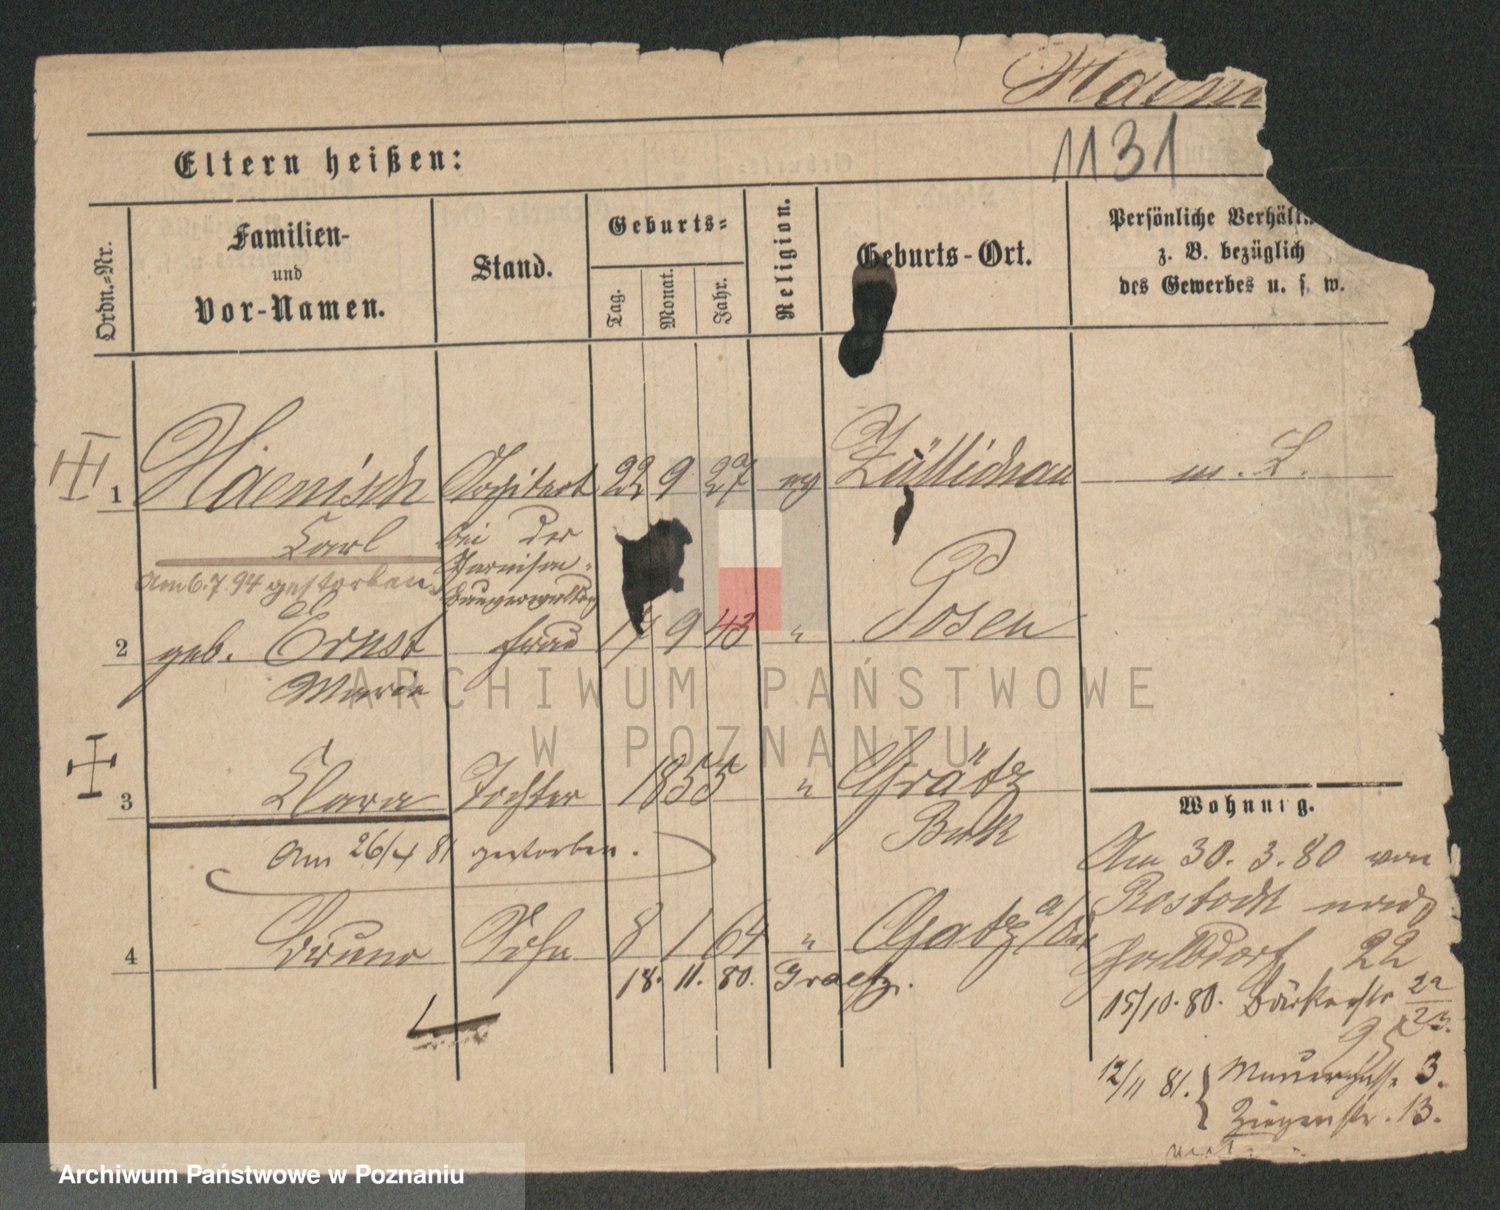 Haenis
1131
Eltern heißen:
Ordn.-Nr.
Familien-
und
Vor-Namen.
Stand.
Geburts-
Tag.
Monat.
Jahr.
Religion.
Geburts-Ort.
Persönliche Verhält
z. B. bezüglich
des Gewerbes u. s. w.
1 Haenisch 22 9 27 ev Züllichau m. L.
Carl bei der
Garnison-
am 6.7.94 gestorben
2 geb. Ernst Frau 17 9 43 " Posen
Marie
ARCHIWUM PAŃSTWOWE
W POZNANIU
3 Clara Tochter 1855 " Grätz
Buk
Am 26/4 81 gestorben.
4 Bruno Sohn 8 1 64 " Gatz a/Od
18. 11. 80. Graetz.
Wohnung.
Am 30. 3. 80 von
Rostock nach
Halbdorf 22
15/10. 80. Bäckerstr 22
23.
12/11 81. { Mauergasse 3.
Ziegenstr. 13.
Archiwum Państwowe w Poznaniu